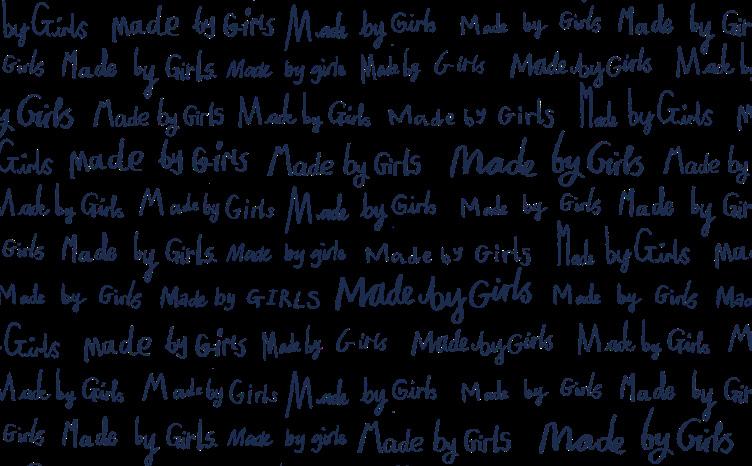 by Girls Made by Girls Made by Girls Made by Girls Made by Gir
Girls Made by Girls Made by girls Made by Girls Made by Girls Made b
y Girls Made by Girls Made by Girls Made by Girls Made by Girls M
Girls Made by Girls Made by Girls Made by Girls Made by
Made by Girls Made by Girls Made by Girls Made by Girls Made by Gir
Girls Made by Girls Made by girls Made by Girls Made by Girls Ma
Made by Girls Made by GIRLS Made by Girls Made by Girls Mad
Girls Made by Girls Made by Girls Made by Girls Made by Girls M
Made by Girls Made by Girls Made by Girls Made by Girls Made by Gir
Girls Made by Girls Made by girls Made by Girls Made by Girls